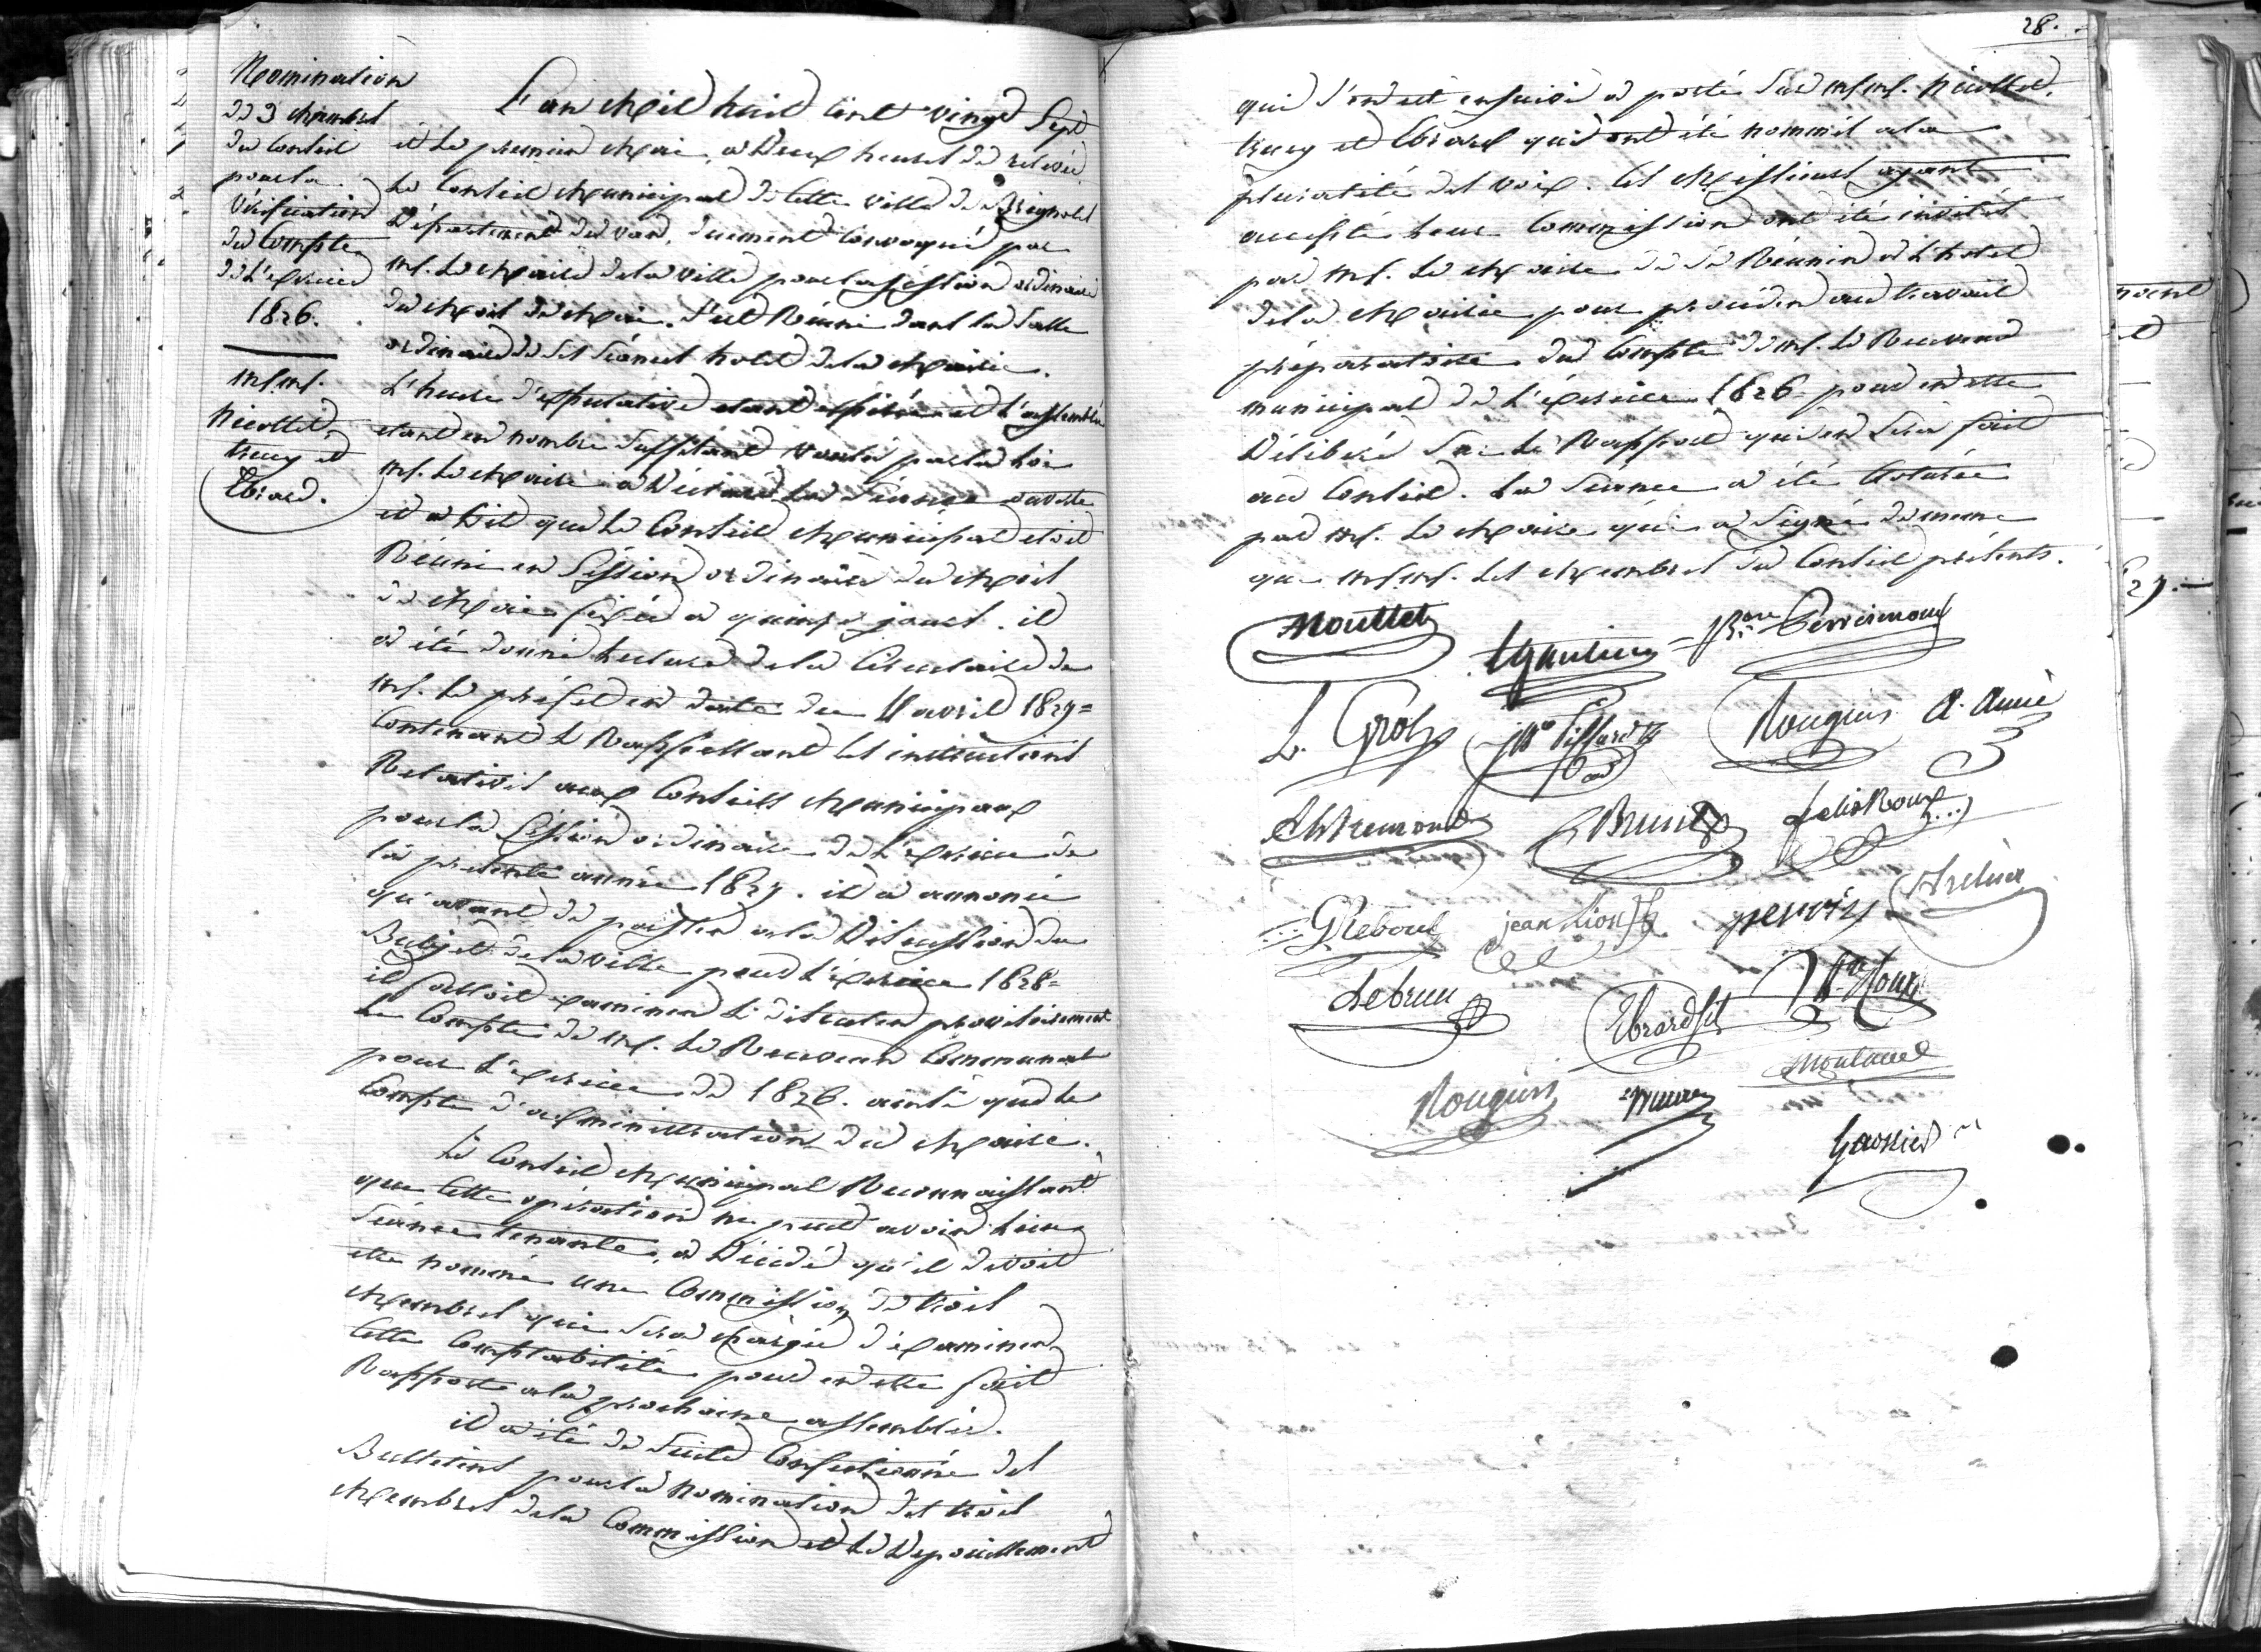 Nomination
de 3 Membres
du Conseil
pour la
Vérification
du Compte
de l'exercice
1826.
MsMs.
Nicollet
Truey et
Ebrard.
L'an Mil huit cent vingt Sept
et le premier Mai, a Deux heures de relevée
Le Conseil Municipal de cette ville de Brignoles
Département du var, duement Convoqué par
Mr. Le Maire de la ville pour la session ordinaire
du Mois de Mai. S'est Réuni dans la Salle
ordinaire de ses séances hotel de la Mairie.
L'heure d'expectative etant expirée et l'assemblée
etant en nombre Suffisant voulu par la Loi
Mr. Le Maire a Déclaré La Séance ouverte
et a Dit que Le Conseil Municipal etoit
Réuni en Session ordinaire du Mois
de Mai fixée a quinze jours. il
a été donné Lecture de la Circulaire de
Mr. Le préfet en datte du 11 avril 1827=
Contenant & Rappellant les instructions
Relatives aux Conseils Municipaux
pour la Cession ordinaire de l'exercice de
la presente année 1827. il a annoncé
qu'avant de passer a la Discussion du
Budjet de la Ville pour l'éxercice 1828=
il falloit examiner & discuter provisoirement
Le Compte de Mr. Le Receveur Communal
pour L'exercice de 1826. ainsi que le
Compte d'administration du Maire.
Le Conseil Municipal Reconnaissant
que Cette opération ne peut avoir Lieu
Séance tenante, a Décidé qu'il devoit
etre nommé une Commission de trois
Membres qui Sera chargée d'éxaminer
Cette Comptabilité pour en etre fait
Rapport a la prochaine assemblée.
il a été de Suite Confectionné des
Bulletins pour la Nomination des trois
Membres de la Commission et Le Depouillement
28.
qui s'en est ensuivi a porté Sur MsMs. Nicollet,
truey et Ebrard qui ont été nommés a la
pluralité des voix. Ces Messieurs ayant
accepté Leur Commission ont été invités
par Mr. Le Maire de se Réunir a L'hotel
de la Mairie pour procéder au travail
préparatoire du Compte de Mr. Le Receveur
municipal de L'éxercice 1826 pour en etre
Délibéré Sur Le Rapport qui en Sera fait
au Conseil. La Séance a été Cloturée
par Mr. Le Maire qui a Signé de meme
que MsMs. Les Membres du Conseil présents.
Mouttet
Perrimond
L. Gros
Rougiers A. Amic
Brun felix Roux
G Reboul jean Lion
Lebrun Ebrard fils Roux
Rougiers
Garnier